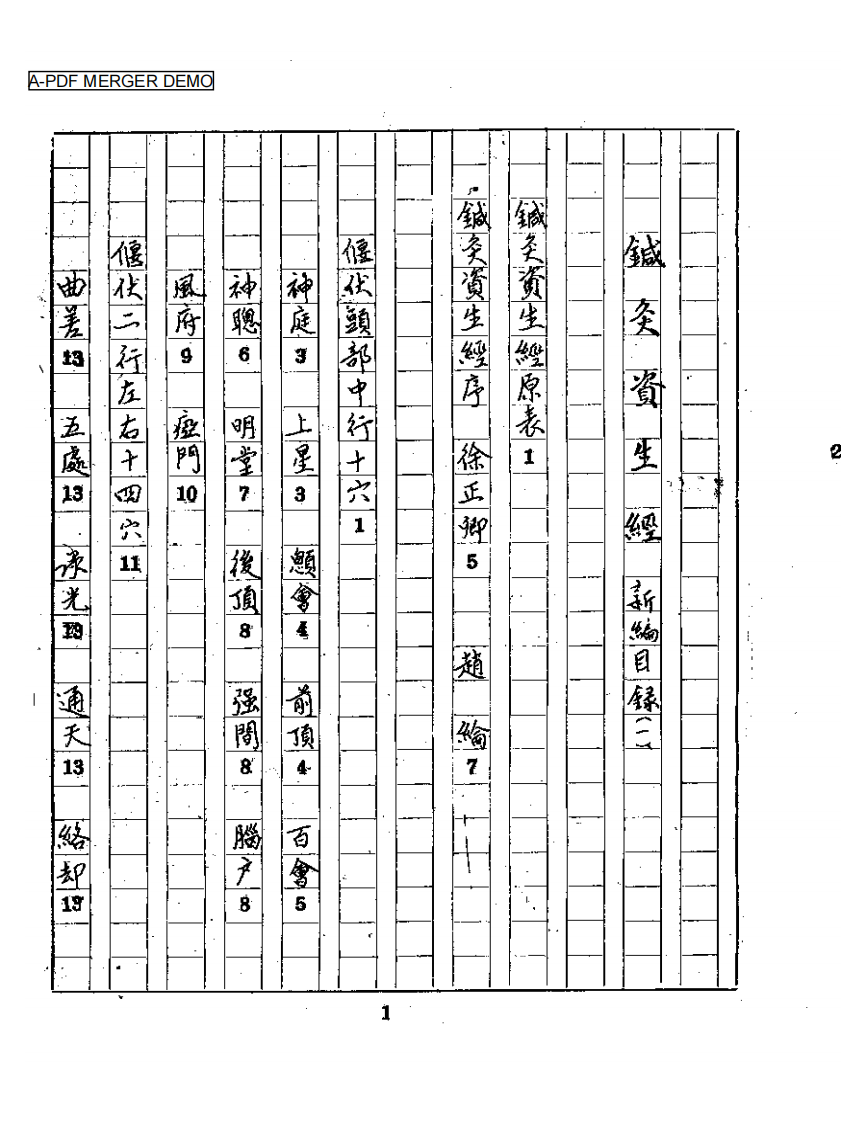 A-PDF MERGER DEMO
鍼灸資生經 新編目録(一)
鍼灸資生經原表 1
鍼灸資生經序 徐正卿 5 趙綸 7
偃伏頭部中行十穴 1
神庭 3 上星 3 顖會 4 前頂 4 百會 5
神聰 6 明堂 7 後頂 8 强間 8 腦户 8
風府 9 瘂門 10
偃伏二行左右十四穴 11
曲差 13 五處 13 承光 13 通天 13 絡却 13
1
2